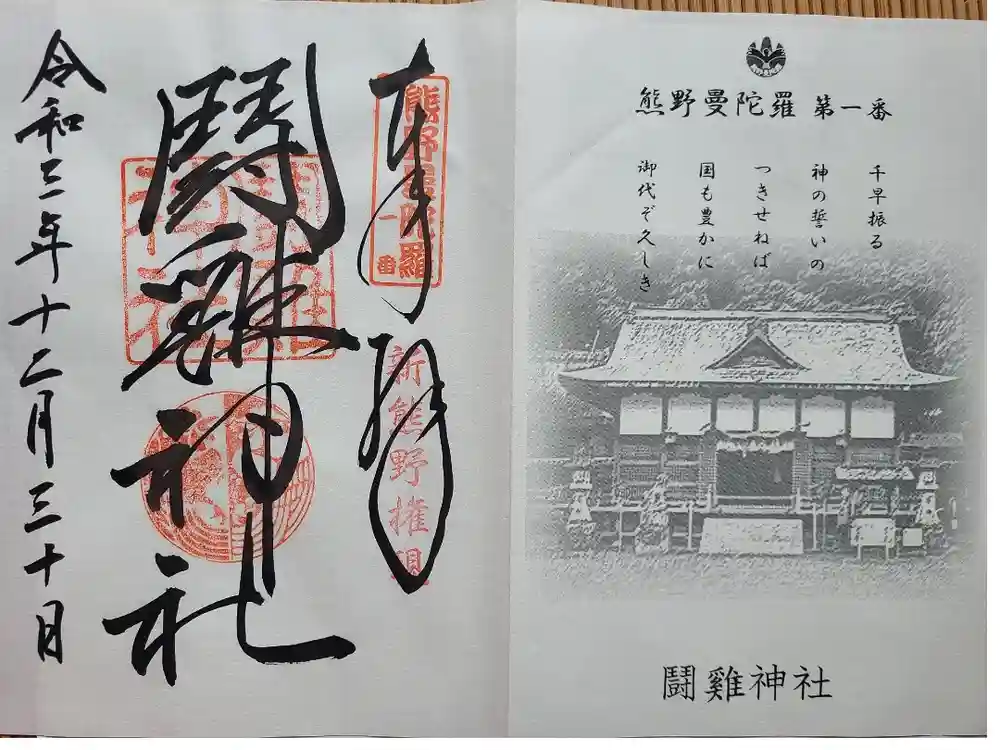 熊野曼陀羅 第一番
千早振る
神の誓いの
つきせねば
国も豊かに
御代ぞ久しき
鬪雞神社
奉拝
熊野曼陀羅
一番
新熊野権現
鬪雞神社
令和三年十二月三十日